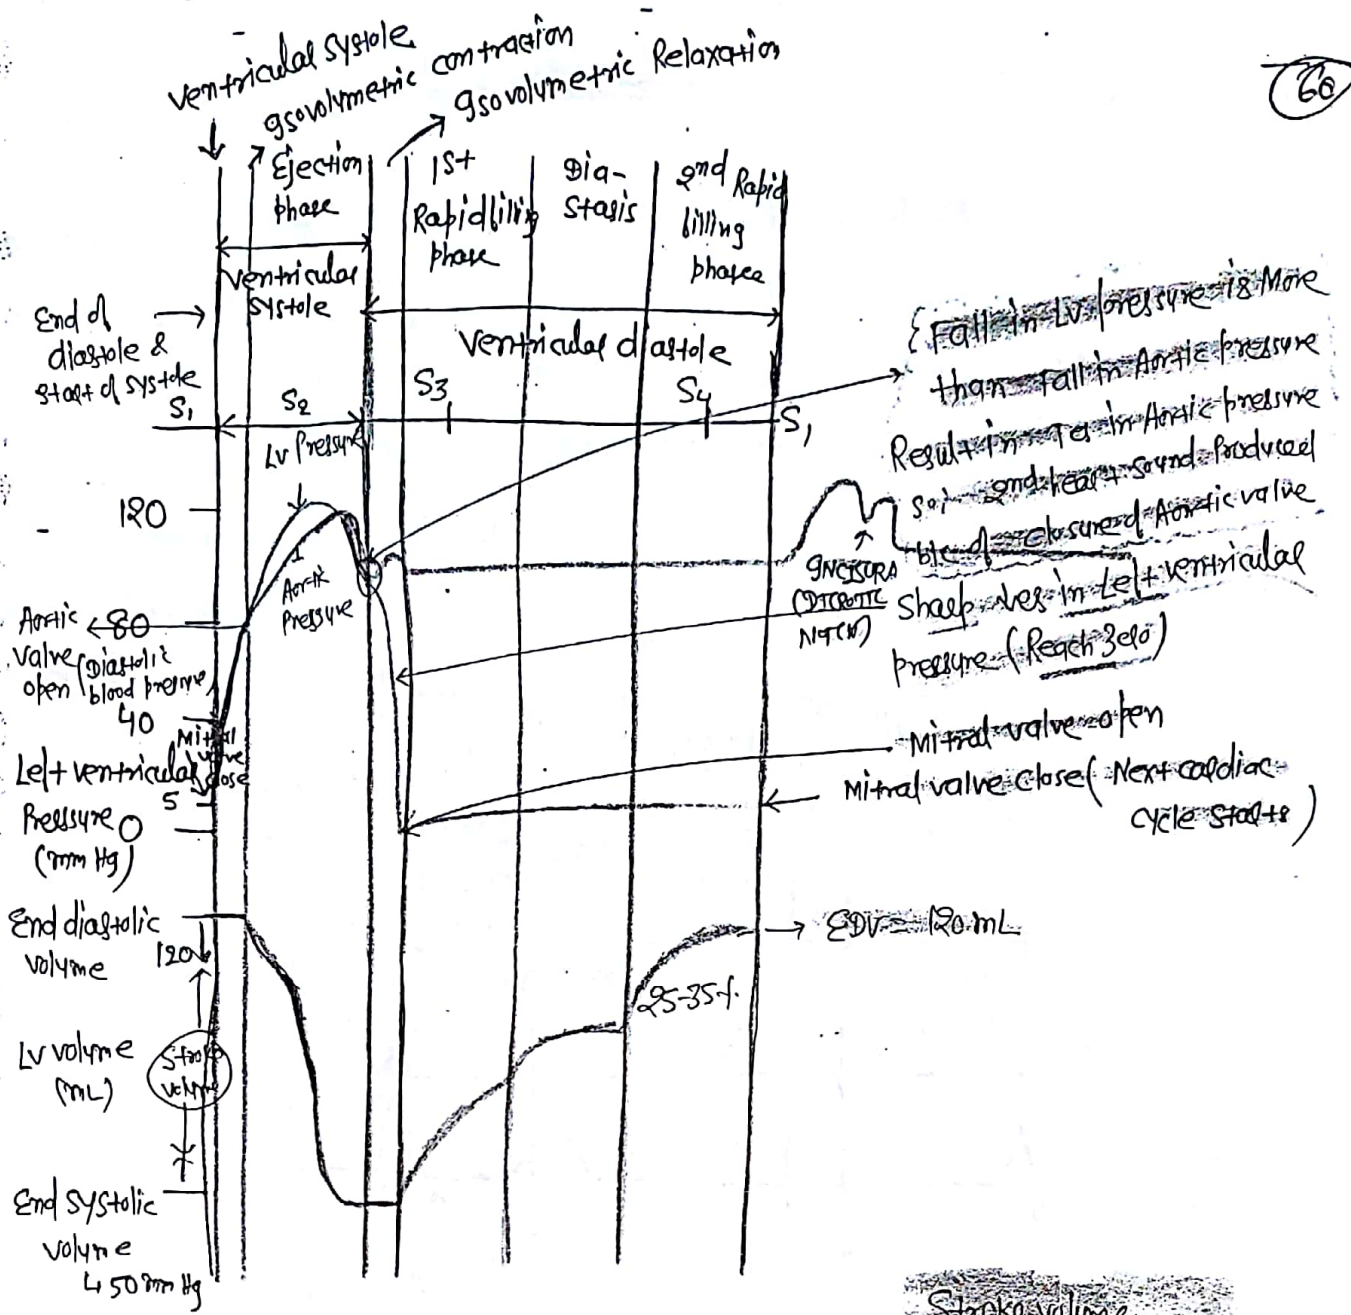 ventricular systole
gsovolymetric contraction
gsovolymetric Relaxation
60
Ejection
phase
1st
Rapidfilling
phase
Dia-
stasis
2nd Rapid
filling
phasea
ventricular
systole
End of
diastole &
start of systole
ventricular diastole
S1
S2
S3
S4
S1
LV Pressure
120
Aortic
Pressure
Aortic
valve
open
80
(Diastolic
blood pressure)
40
Mitral
valve
close
Left ventricular
5
Pressure 0
(mm Hg)
{Fall in LV pressure is More
than fall in Aortic pressure
Result in in Aortic pressure
2nd heart sound Produced
b/c of closure of Aortic valve
gNCISURA
(DICROTIC
NOTCH)
Sharp in Left ventricular
pressure (Reach Zero)
Mitral valve open
Mitral valve close (Next cardiac
cycle starts)
End diastolic
volyme
120
EDV = 120 mL
25-35%
LV volyme
(mL)
Stroke
volym
End systolic
volyme
50 mm Hg
Stroke volume